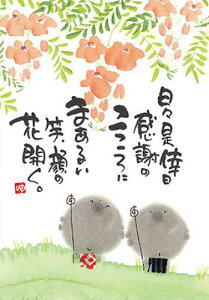 日々是倖日
感謝の
こころに
まあるい
笑顔の
花開く。